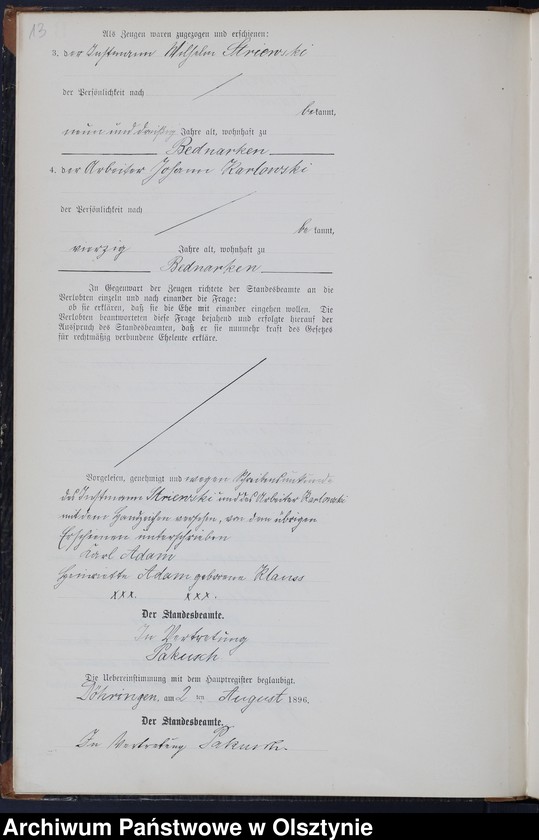 13
Als Zeugen waren zugezogen und erschienen:
3. der Instmann Wilhelm Striewski
der Persönlichkeit nach
bekannt,
neun und dreißig Jahre alt, wohnhaft zu
Bednarken
4. der Arbeiter Johann Karlowski
der Persönlichkeit nach
bekannt,
vierzig Jahre alt, wohnhaft zu
Bednarken
In Gegenwart der Zeugen richtete der Standesbeamte an die
Verlobten einzeln und nach einander die Frage:
ob sie erklären, daß sie die Ehe mit einander eingehen wollen. Die
Verlobten beantworteten diese Frage bejahend und erfolgte hierauf der
Ausspruch des Standesbeamten, daß er sie nunmehr kraft des Gesetzes
für rechtmäßig verbundene Eheleute erkläre.
Vorgelesen, genehmigt und wegen Schreibensunkunde
des Instmann Striewski und des Arbeiter Karlowski
mit dem Handzeichen versehen, von den übrigen
Erschienen unterschrieben
Karl Adam
Henriette Adam geborene Klauss
xxx. xxx.
Der Standesbeamte.
In Vertretung
Pakusch
Die Uebereinstimmung mit dem Hauptregister beglaubigt.
Döhringen, am 2 ten August 1896.
Der Standesbeamte.
In Vertretung Pakusch.
Archiwum Państwowe w Olsztynie